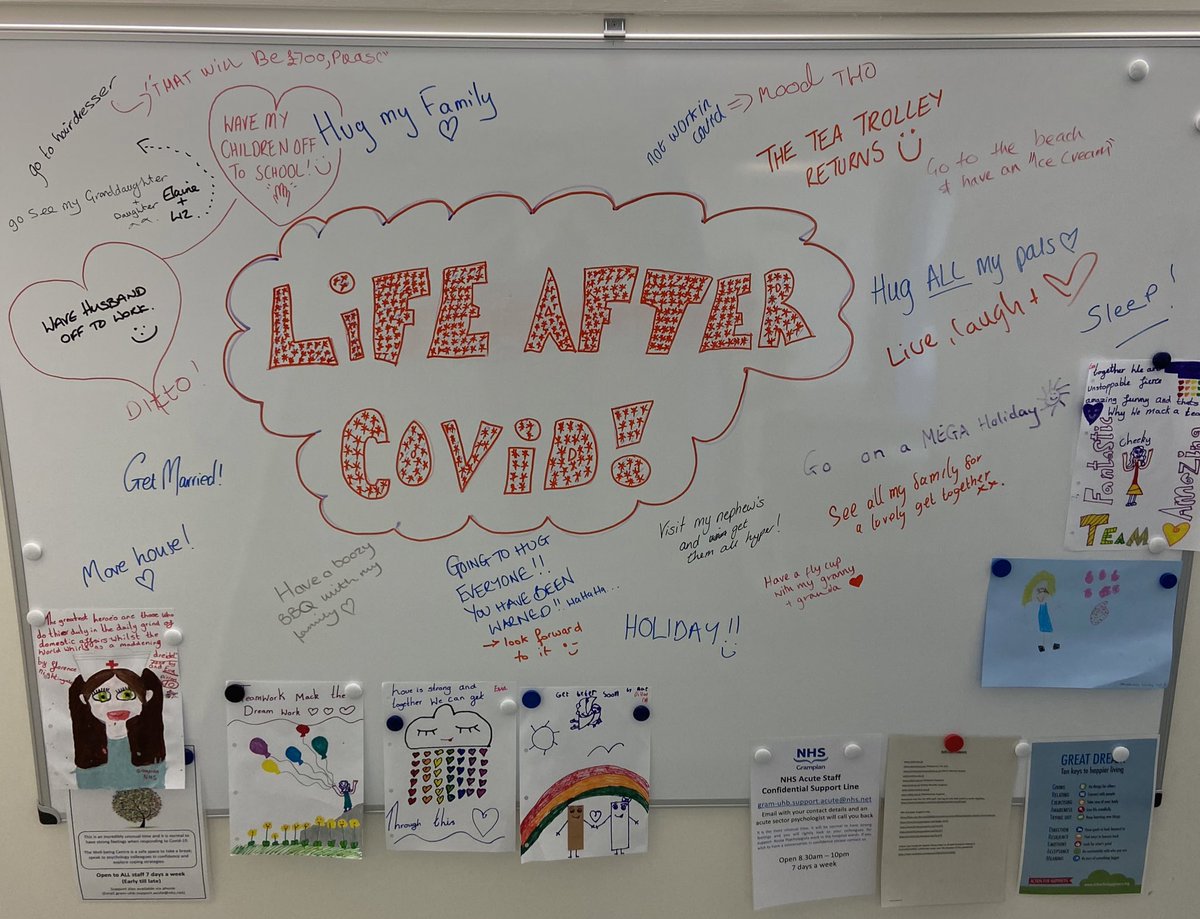 go to hairdresser
"THAT Will BE £700, Please"
WAVE MY
CHILDREN OFF
TO SCHOOL!
Hug my Family
not work in
covid
=> Mood TWO
THE TEA TROLLEY
RETURNS
Go to the beach
& have an "Ice Cream"
go see my Granddaughter
+
Daughter
Elaine
+
LIZ
WAVE HUSBAND
OFF TO WORK.
DITTO!
LiFE AFTER
COViD!
Hug ALL my pals
Live, laugh +
Sleep!
Get Married!
Move house!
Go on a MEGA Holiday
See all my family for
a lovely get together
xx.
Visit my nephew's
and get
them all hyper!
Have a fly cup
with my granny
+ granda
Have a boozy
BBQ with my
family
GOING TO HUG
EVERYONE!!
YOU HAVE BEEN
WARNED!! Hattath...
→ look forward
to it
HOLIDAY!!
together We are
unstoppable fierce
amazing funny and thats
Why We mack a tea
Fantastic
cheeky
Amazing
TEAM
The greatest heroes are those who
do thier duty in the daily grind of
domestic affairs whilst the
world whirls as a maddening
dreidel
by florence
Grampian
NHS
This is an incredibly unusual time and it is normal to
have strong feelings when responding to Covid-19.
The Well-being Centre is a safe space to take a break,
speak to psychology colleagues in confidence and
explore coping strategies
Open to ALL staff 7 days a week
(Early till late)
Teamwork Mack the
Dream Work
Love is strong and
together We can get
Through this
Get better soon
NHS
Grampian
NHS Acute Staff
Confidential Support Line
gram-uhb.support.acute@nhs.net
Email with your contact details and an
acute sector psychologist will call you back
Open 8.30am – 10pm
7 days a week
GREAT DREAM
Ten keys to happier living
GIVING
RELATING
EXERCISING
AWARENESS
TRYING OUT
DIRECTION
RESILIENCE
EMOTIONS
ACCEPTANCE
MEANING
ACTION FOR HAPPINESS